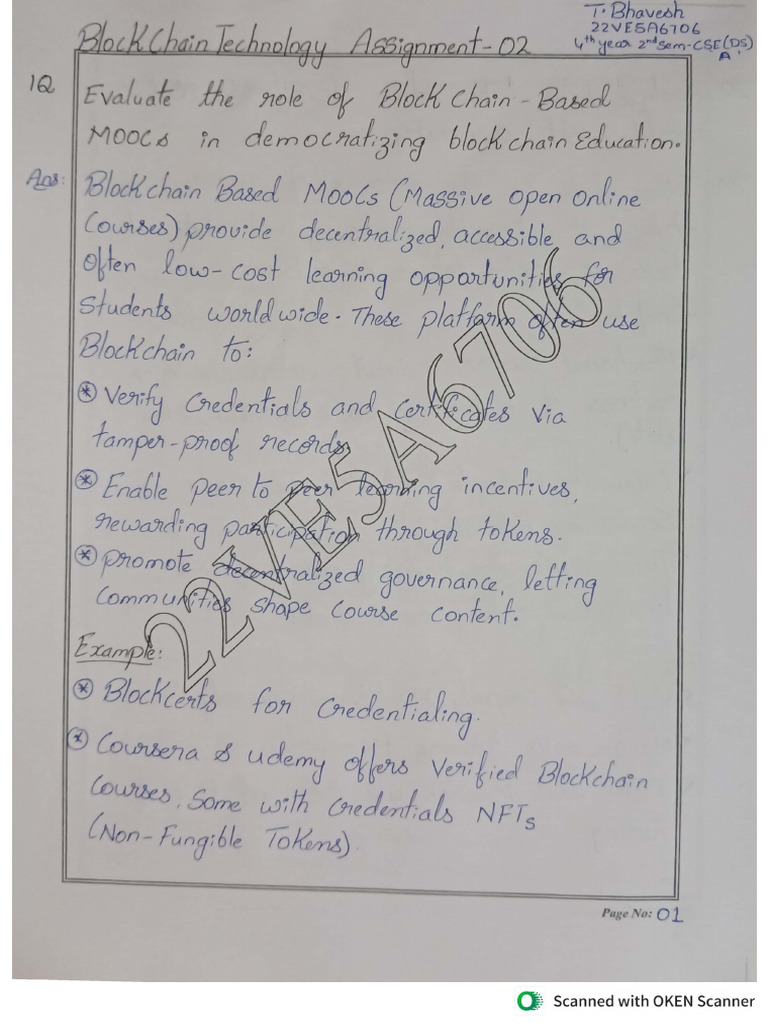 T. Bhavesh
22VE5A6706
4th year 2nd sem-CSE(DS)
A
BlockChain Technology Assignment-02
1Q Evaluate the role of Block Chain-Based
MOOCs in democratizing blockchain Education.
Ans: Blockchain Based MOOCs (Massive open online
Courses) provide decentralized, accessible and
often low-cost learning opportunities for
Students world wide. These platform often use
Blockchain to:
* Verify Credentials and Certificates via
tamper-proof records.
* Enable peer to peer learning incentives,
rewarding participation through tokens.
* promote decentralized governance, letting
Communities shape Course Content.
Example:
* Blockcerts for Credentialing.
* Coursera & udemy offers Verified Blockchain
Courses, Some with Credentials NFTs
(Non-Fungible Tokens).
22VE5A6706
Page No: 01
Scanned with OKEN Scanner